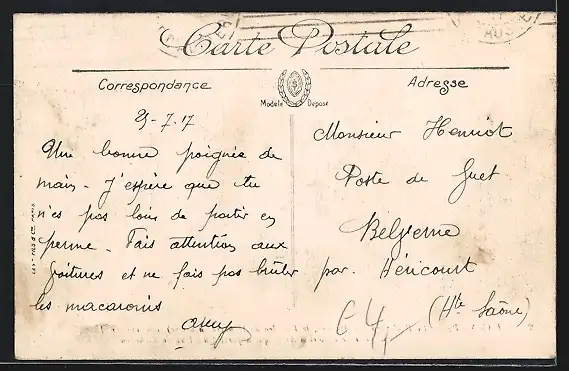 Carte Postale
Correspondance
Adresse
Modèle Déposé
25-7.17
Une bonne poignée de
main - J'espère que tu
n'es pas loin de partir en
perme. Fais attention aux
foitures et ne fais pas brûler
les macaronis
Monsieur Henriot
Poste de Guet
Belverne
par. Héricourt
(Hte Saône)